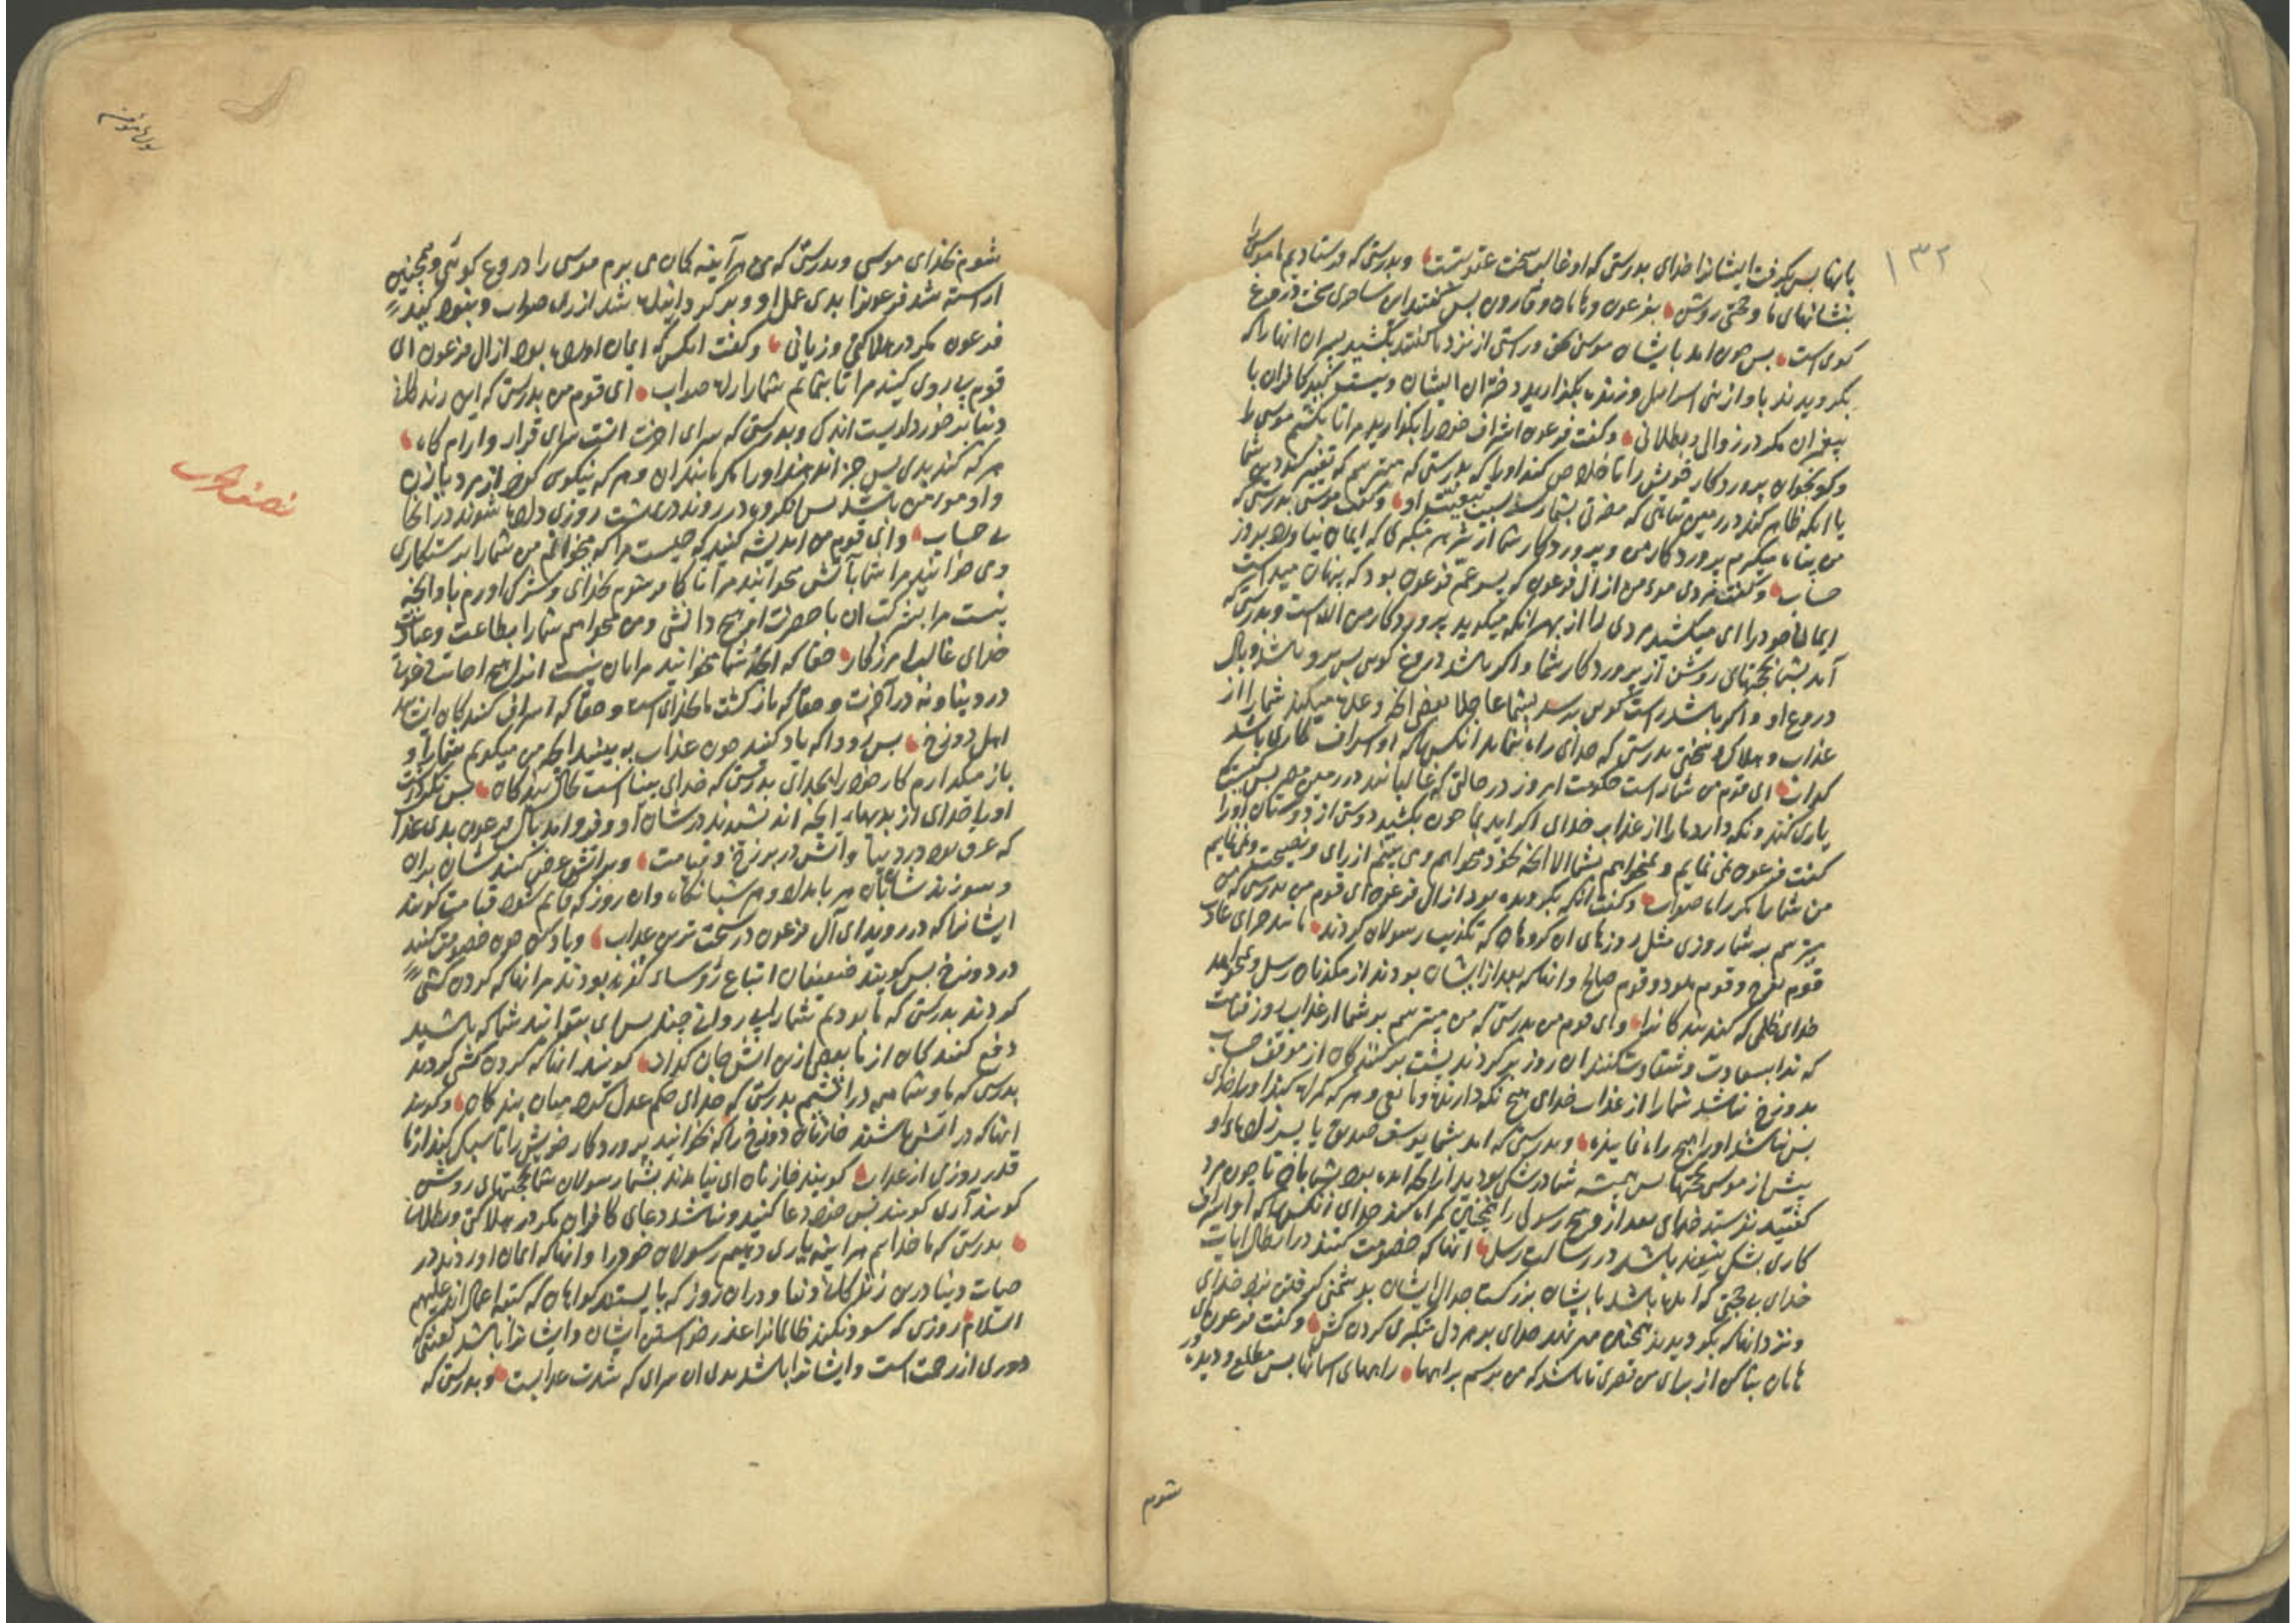 ۱۳۲
بانها پس بگرفت ایشانرا خدای بدرستی که او غالب سخت عقوبتست وبدرستی که فرستادیم ما موسی را
بنشانهای ما وحجتی روشن بفرعون وهامان وقارون پس گفتند این ساحری سخت دروغ
کوی است پس چون امد بایشان موسی بحق وراستی از نزد ما گفتند بکشید پسران انها را که
بکرویدند باو از بنی اسراییل وزنده بکذارید دختران ایشان ونیست کید کافران با
پیغمبران مکر در زوال وبطلانی وکفت فرعون اشراف خود را بکذارید مرا تا بکشم موسی را
وکو بخوان پروردکار خویش را تا خلاص کند او را که بدرستی که میترسم که تغییر کند دین شما
یا انکه ظاهر کند در زمین تباهی که مضرتی بشما رسد بسبب تبعیت او وکفت موسی بدرستی که
من پناه میکیرم بپروردکار من وپروردکار شما از شر هر متکبری که ایمان نیاورد بروز
حساب وکفت مردی مومن از ال فرعون که پسر عم فرعون بود که پنهان میداشت
ایمان خود را ای میکشید مردی را از بهر انکه میکوید پروردکار من الله است وبدرستی که
آمد بشما بحجتهای روشن از پروردکار شما واکر باشد دروغ کوی پس برو باشد وبال
دروغ او واکر باشد راست کوی برسد بشما عاجلا بعضی انچه وعده میکند شما را از
عذاب وهلاک وسختی بدرستی که خدای راه ننماید انکس را که او اسراف کاری باشد
کذاب ای قوم من شما راست حکومت امروز در حالتی که غالبانند در زمین مصر پس کیست که
یاری کند ونکه دارد ما را از عذاب خدای اکر اید بما چون بکشید دوستی از دوستان او را
کفت فرعون نمی نمایم ونمیخواهم بشما الا انچه بخود میخواهم ومی بینم از رای ونصیحت ونمی نمایم
من شما را مکر راه صواب وکفت انکه بکرویده بود از ال فرعون ای قوم من بدرستی که من
میترسم بر شما روزی مثل روزهای ان کروهان که تکذیب رسولان کردند مانند جزای عادت
قوم نوح وقوم هود وقوم صالح وانها که بعد از ایشان بودند از مکذبان رسل ونخواهد
خدای ظلمی که کند بندکانرا وای قوم من بدرستی که من میترسم بر شما از عذاب روز قیامت
که ندا بسعادت وشقاوت کنند ان روز برکردند پشت برکنندکان از موقف حساب
بدوزخ نباشد شما را از عذاب خدای هیچ نکه دارنده ومانعی وهر که کمراه کند او را خدای
پس نباشد او را هیچ راه نماینده وبدرستی که امد بشما یوسف صدیق یا پسر زاده او
پیش از موسی بحجتها پس همیشه شما در شکی بودید از انچه امده بود بشما بان تا چون مرد
کفتید نفرستد خدای بعد از وهیچ رسولی را همچنین کمراه کند خدای انکس را که او اسراف
کاری بشک شونده باشد در رسالت رسل انها که خصومت کنند در ابطال ایات
خدای بی حجتی که امده باشد بایشان بزرکست جدال ایشان بدشمنی کرفتن نزد خدای
ونزد انها که بکرویدند همچنین مهر نهد خدای بر هر دل متکبری کردن کش وکفت فرعون ای
هامان بنا کن از برای من قصری تا باشد که من برسم براهها راههای اسمانها پس مطلع ودیده ور
شوم
شوم بخدای موسی وبدرستی که من هر آینه کمان می برم موسی را دروغ کوئی وهمچنین
اراسته شد فرعونرا بدی عمل او وبرکردانیده شد از راه صواب ونبود کید
فرعون مکر در هلاکتی وزیانی وکفت انکس که ایمان اورده بود از ال فرعون ای
قوم پیروی کنید مرا تا بنمایم شما را راه صواب ای قوم من بدرستی که این زندکانی
دنیا برخورداریست اندک وبدرستی که سرای اخرت انست سرای قرار وارام کاه
هر که کند بدی پس جزا ندهند او را مکر مانند ان وهر که نیکوی کند از مرد یا زن
واو مومن باشد پس انکروه در روند در بهشت روزی داده شوند در انجا
بی حساب وای قوم من اندیشه کنید که چیست مرا که میخوانم من شما را برستکاری
ومی خوانید مرا شما بآتش میخوانید مرا تا کافر شوم بخدای وشرک اورم باو انچه
نیست مرا بشرکت ان با حضرت او هیچ دانشی ومن میخوانم شما را بطاعت وعبادت
خدای غالب امرزکار حقا که انچه شما میخوانید مرا بان نیست انرا هیچ اجابت دعوت
در دنیا ونه در آخرت وحقا که بازکشت ما بخدای است وحقا که اسراف کنندکان ایشانند
اهل دوزخ پس زود که یاد کنید چون عذاب به بینید انچه من میکویم شما را و
باز میکذارم کار خود را بخدای بدرستی که خدای بیناست بحال بندکان پس نکه داشت
او را خدای از بدیهای انچه اندیشیدند در شان او وفرو امد بال فرعون بدی عذاب
که غرق بود در دنیا وآتش در برزخ وقیامت وبر آتش عرض کنند ایشان بران
وسوزند شان هر بامداد وهر شبانکاه وان روز که قایم شود قیامت کویند
ایشانرا که در روید ای آل فرعون در سخت ترین عذاب ویاد کن چون خصومت کنند
در دوزخ پس کویند ضعیفان اتباع رؤساء کفره بودند مر انها که کردن کشی
کردند بدرستی که ما بودیم شما را پیروانی چند پس ای بتوانند شما که باشید
دفع کنندکان از ما بعضی ازین اتش کویند انها که کردن کشی کردند
بدرستی که ما وشما همه در اتشیم بدرستی که خدای حکم عدل کند میان بندکان وکویند
انها که در اتش باشند خازنان دوزخ را که بخوانید پروردکار خویش را تا سبک کند از ما
قدر روزی از عذاب کویند خازنان ای نیامدند بشما رسولان شما بحجتهای روشن
کویند آری کویند پس خود دعا کنید ونباشد دعای کافران مکر در هلاکت وبطلان
بدرستی که ما خدایم هر اینه یاری دهیم رسولان خود را وانها که ایمان اوردند در
حیات دنیا درین زندکانی دنیا ودران روز که بایستند کواهان که کتبه اعمال اند علیهم
السلام روزی که سود نکند ظالمانرا عذر خواستن ایشان وایشانرا باشد لعنتی که
دوری از رحمت است وایشانرا باشد بدی ان سرای که شدت عذابست وبدرستی که
نصف الحزب